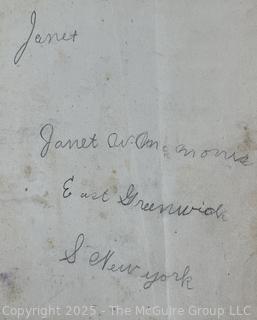 Janet
Janet W. McMorris
East Greenwich
S New york
Copyright 2025 - The McGuire Group LLC